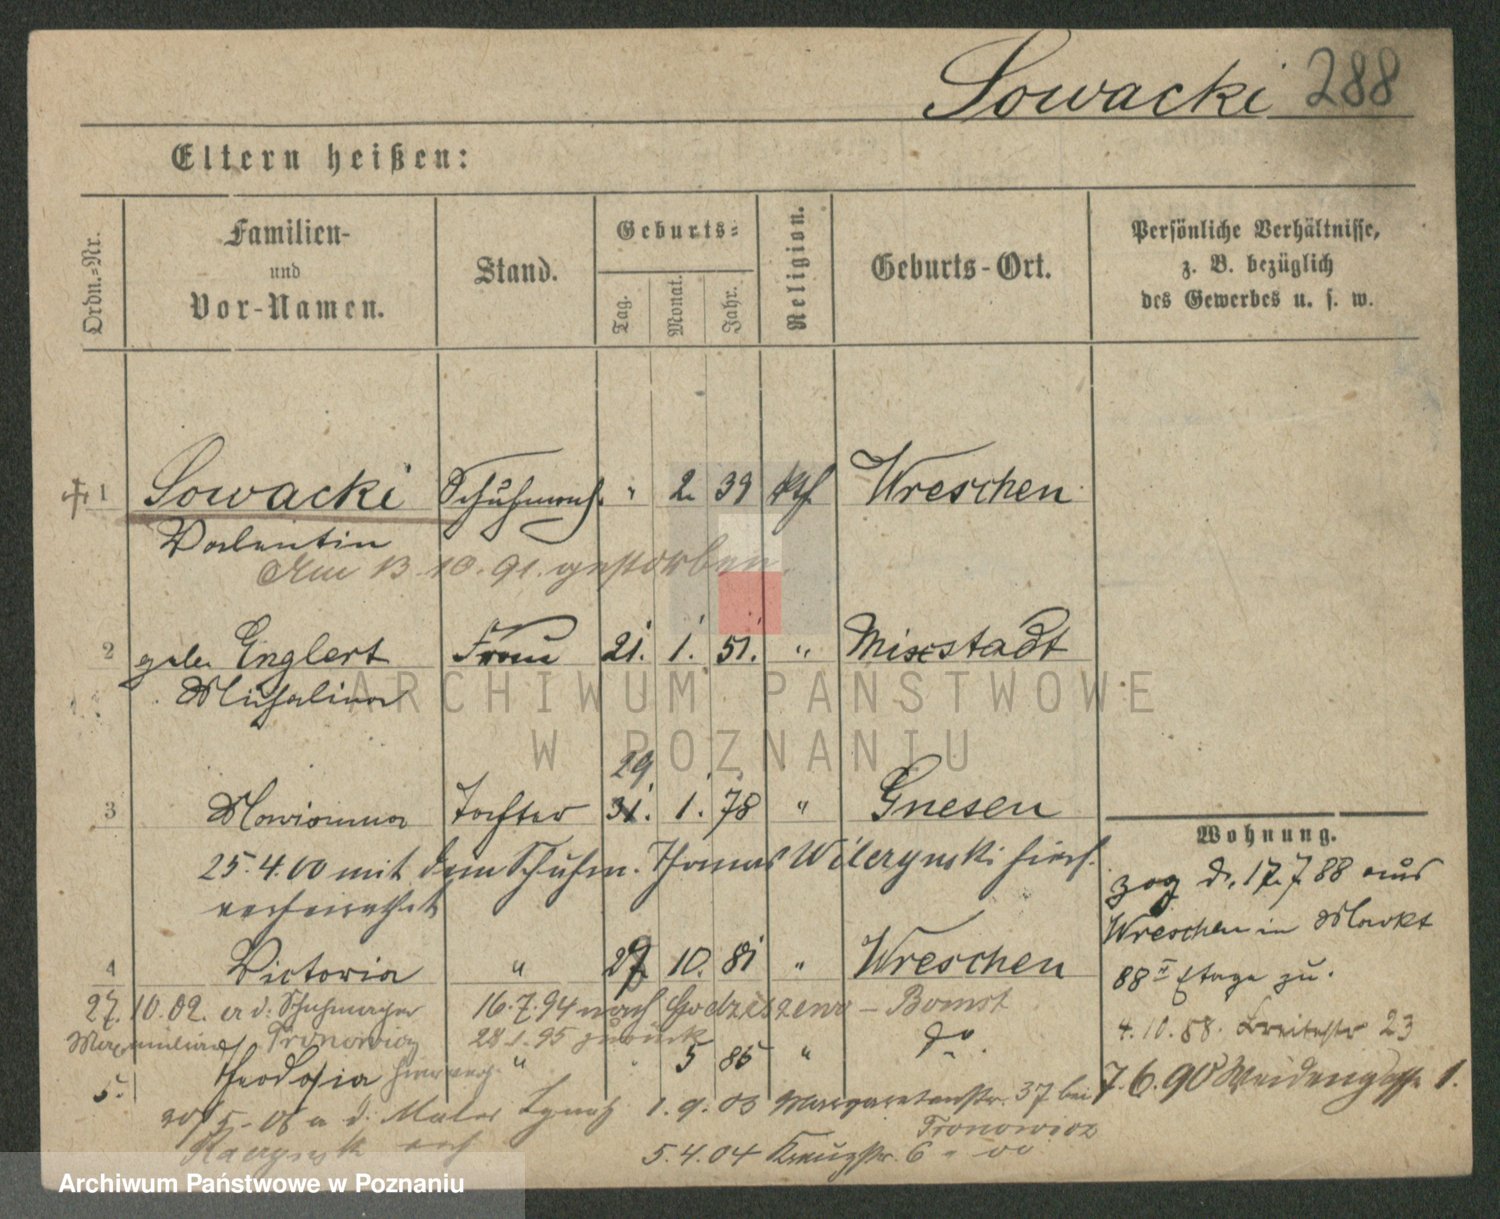 Sowacki 288
Eltern heißen:
Ordn.-Nr.
Familien- und Vor-Namen.
Stand.
Geburts-
Tag.
Monat.
Jahr.
Religion.
Geburts-Ort.
Persönliche Verhältnisse,
z. B. bezüglich
des Gewerbes u. s. w.
1 Sowacki Schuhmach. " 2. 39 kth Wreschen
Valentin
Am 13.10.91. gestorben.
2 geb. Englert Frau 21. 1. 51. " Mixstadt
Michalina
29
3 Marianna Tochter 31. 1. 78 " Gnesen
25.4.00 mit dem Schuhm. Thomas Wilczynski hier
verheirathet
4 Victoria " 27. 10. 81 " Wreschen
27.10.02. a. d. Schuhmacher 16.7.94 nach – Bomst
Maximilian Fronowicz 28.1.95 zurück
5. Theodosia " 5 86 " do.
20/5-06 a d. Maler 1.9.03 Margaretenstr. 37 bei
Fronowicz
Kaczynski 5.4.04 Kreuzstr. 6
Wohnung.
zog d. 17.7.88 aus
Wreschen in Markt
88 II Etage zu.
4.10.88. Breitestr 23
7.6.90 Weidengasse 1.
ARCHIWUM PAŃSTWOWE
W POZNANIU
Archiwum Państwowe w Poznaniu